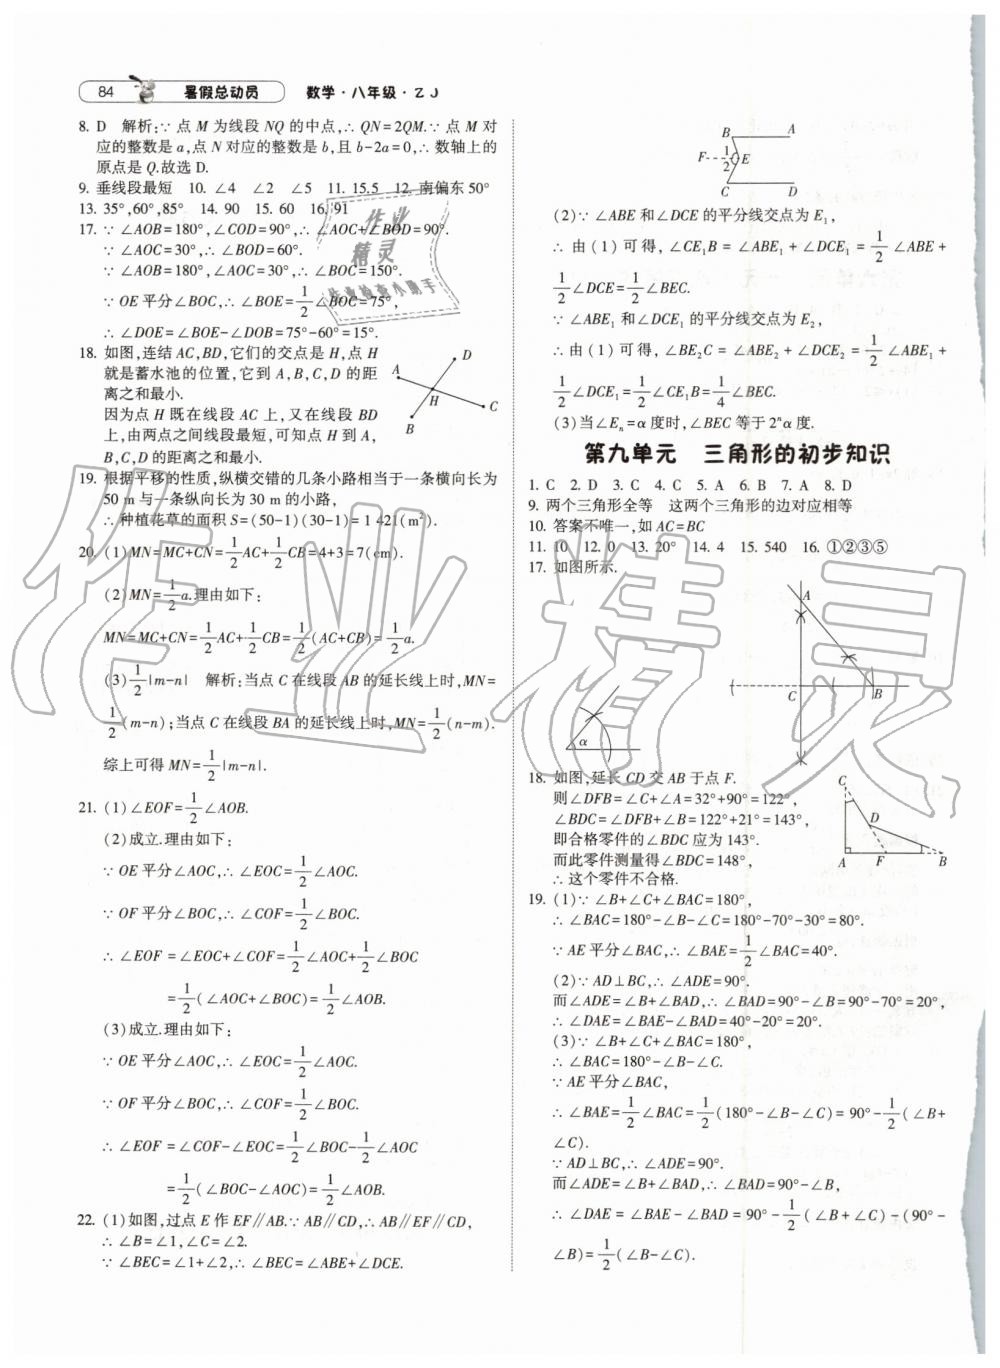 84 暑假总动员 数学·八年级·ZJ
8. D 解析:∵点 M 为线段 NQ 的中点,∴QN=2QM.∵点 M 对
应的整数是 a,点 N 对应的整数是 b,且 b-2a=0,∴数轴上的
原点是 Q.故选 D.
9. 垂线段最短 10. ∠4 ∠2 ∠5 11. 15.5 12. 南偏东50°
13. 35°,60°,85° 14. 90 15. 60 16. 91
17. ∵∠AOB=180°,∠COD=90°,∴∠AOC+∠BOD=90°.
∵∠AOC=30°,∴∠BOD=60°.
∵∠AOB=180°,∠AOC=30°,∴∠BOC=150°.
∵OE 平分∠BOC,∴∠BOE=1/2∠BOC=75°,
∴∠DOE=∠BOE-∠DOB=75°-60°=15°.
18. 如图,连结 AC,BD,它们的交点是 H,点 H
就是蓄水池的位置,它到 A,B,C,D 的距
离之和最小.
因为点 H 既在线段 AC 上,又在线段 BD
上,由两点之间线段最短,可知点 H 到 A,
B,C,D 的距离之和最小.
A D H C B
19. 根据平移的性质,纵横交错的几条小路相当于一条横向长为
50 m 与一条纵向长为 30 m 的小路,
∴种植花草的面积 S=(50-1)(30-1)=1 421(m²).
20. (1)MN=MC+CN=1/2AC+1/2CB=4+3=7(cm).
(2)MN=1/2a.理由如下:
MN=MC+CN=1/2AC+1/2CB=1/2(AC+CB)=1/2a.
(3)1/2|m-n| 解析:当点 C 在线段 AB 的延长线上时,MN=
1/2(m-n);当点 C 在线段 BA 的延长线上时,MN=1/2(n-m).
综上可得 MN=1/2|m-n|.
21. (1)∠EOF=1/2∠AOB.
(2)成立.理由如下:
∵OE 平分∠AOC,∴∠EOC=1/2∠AOC.
∵OF 平分∠BOC,∴∠COF=1/2∠BOC.
∴∠EOF=∠EOC+∠COF=1/2∠AOC+1/2∠BOC
=1/2(∠AOC+∠BOC)=1/2∠AOB.
(3)成立.理由如下:
∵OE 平分∠AOC,∴∠EOC=1/2∠AOC.
∵OF 平分∠BOC,∴∠COF=1/2∠BOC.
∴∠EOF=∠COF-∠EOC=1/2∠BOC-1/2∠AOC
=1/2(∠BOC-∠AOC)=1/2∠AOB.
22. (1)如图,过点 E 作 EF∥AB.∵AB∥CD,∴AB∥EF∥CD,
∴∠B=∠1,∠C=∠2.
∵∠BEC=∠1+∠2,∴∠BEC=∠ABE+∠DCE.
B A F 1 2 E C D
(2)∵∠ABE 和∠DCE 的平分线交点为 E₁,
∴由(1)可得,∠CE₁B=∠ABE₁+∠DCE₁=1/2∠ABE+
1/2∠DCE=1/2∠BEC.
∵∠ABE₁ 和∠DCE₁ 的平分线交点为 E₂,
∴由(1)可得,∠BE₂C=∠ABE₂+∠DCE₂=1/2∠ABE₁+
1/2∠DCE₁=1/2∠CE₁B=1/4∠BEC.
(3)当∠Eₙ=α 度时,∠BEC 等于 2ⁿα 度.
第九单元 三角形的初步知识
1. C 2. D 3. C 4. C 5. A 6. B 7. A 8. D
9. 两个三角形全等 这两个三角形的边对应相等
10. 答案不唯一,如 AC=BC
11. 10 12. 0 13. 20° 14. 4 15. 540 16. ①②③⑤
17. 如图所示.
A C B α
18. 如图,延长 CD 交 AB 于点 F.
则∠DFB=∠C+∠A=32°+90°=122°,
∠BDC=∠DFB+∠B=122°+21°=143°,
即合格零件的∠BDC 应为 143°.
而此零件测量得∠BDC=148°,
∴这个零件不合格.
C D A F B
19. (1)∵∠B+∠C+∠BAC=180°,
∴∠BAC=180°-∠B-∠C=180°-70°-30°=80°.
∵AE 平分∠BAC,∴∠BAE=1/2∠BAC=40°.
(2)∵AD⊥BC,∴∠ADE=90°.
而∠ADE=∠B+∠BAD,∴∠BAD=90°-∠B=90°-70°=20°,
∴∠DAE=∠BAE-∠BAD=40°-20°=20°.
(3)∵∠B+∠C+∠BAC=180°,
∴∠BAC=180°-∠B-∠C.
∵AE 平分∠BAC,
∴∠BAE=1/2∠BAC=1/2(180°-∠B-∠C)=90°-1/2(∠B+
∠C).
∵AD⊥BC,∴∠ADE=90°.
而∠ADE=∠B+∠BAD,∴∠BAD=90°-∠B,
∴∠DAE=∠BAE-∠BAD=90°-1/2(∠B+∠C)-(90°-
∠B)=1/2(∠B-∠C).
作业精灵
作业
精灵
作业检查小助手